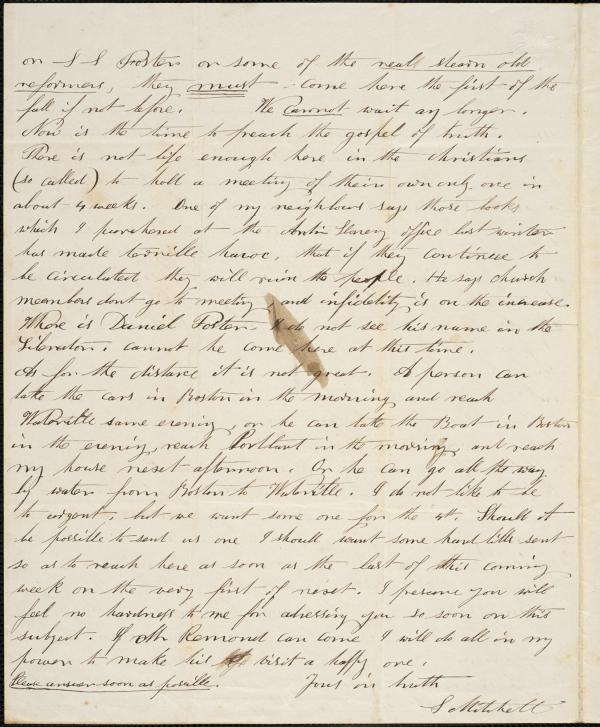 or S S Foster or some of the real stearn old
reformers, they must come here the first of the
fall if not before. We cannot wait any longer.
Now is the time to preach the gospel of truth.
There is not life enough here in the christians
(so called) to hold a meeting of their own only one in
about 4 weeks. One of my neighbours says those books
which I purchased at the Antie Slavery office last winter
has made terrible havoc, that if they continue to
be circulated they will ruin the people. He says church
members dont go to meeting, and infidelity is on the increase.
Where is Daniel Foster I do not see his name in the
Liberator. cannot he come here at this time.
As for the distance it is not great. A person can
take the cars in Boston in the morning and reach
Waterville same evening, or he can take the Boat in Boston
in the evening, reach Portland in the morning, and reach
my house next afternoon. Or he can go all the way
by water from Boston to Waterville. I do not like to be
to urgent, but we want some one for the 4th. Should it
be possible to sent us one I should want some hand bills sent
so as to reach here as soon as the last of this coming
week or the very first of next. I presume you will
feel no hardness to me for adressing you so soon on this
subject. If Mr Remond can come I will do all in my
power to make his visit a happy one.
Please answer soon as posible. Yours in truth
S Mitchell